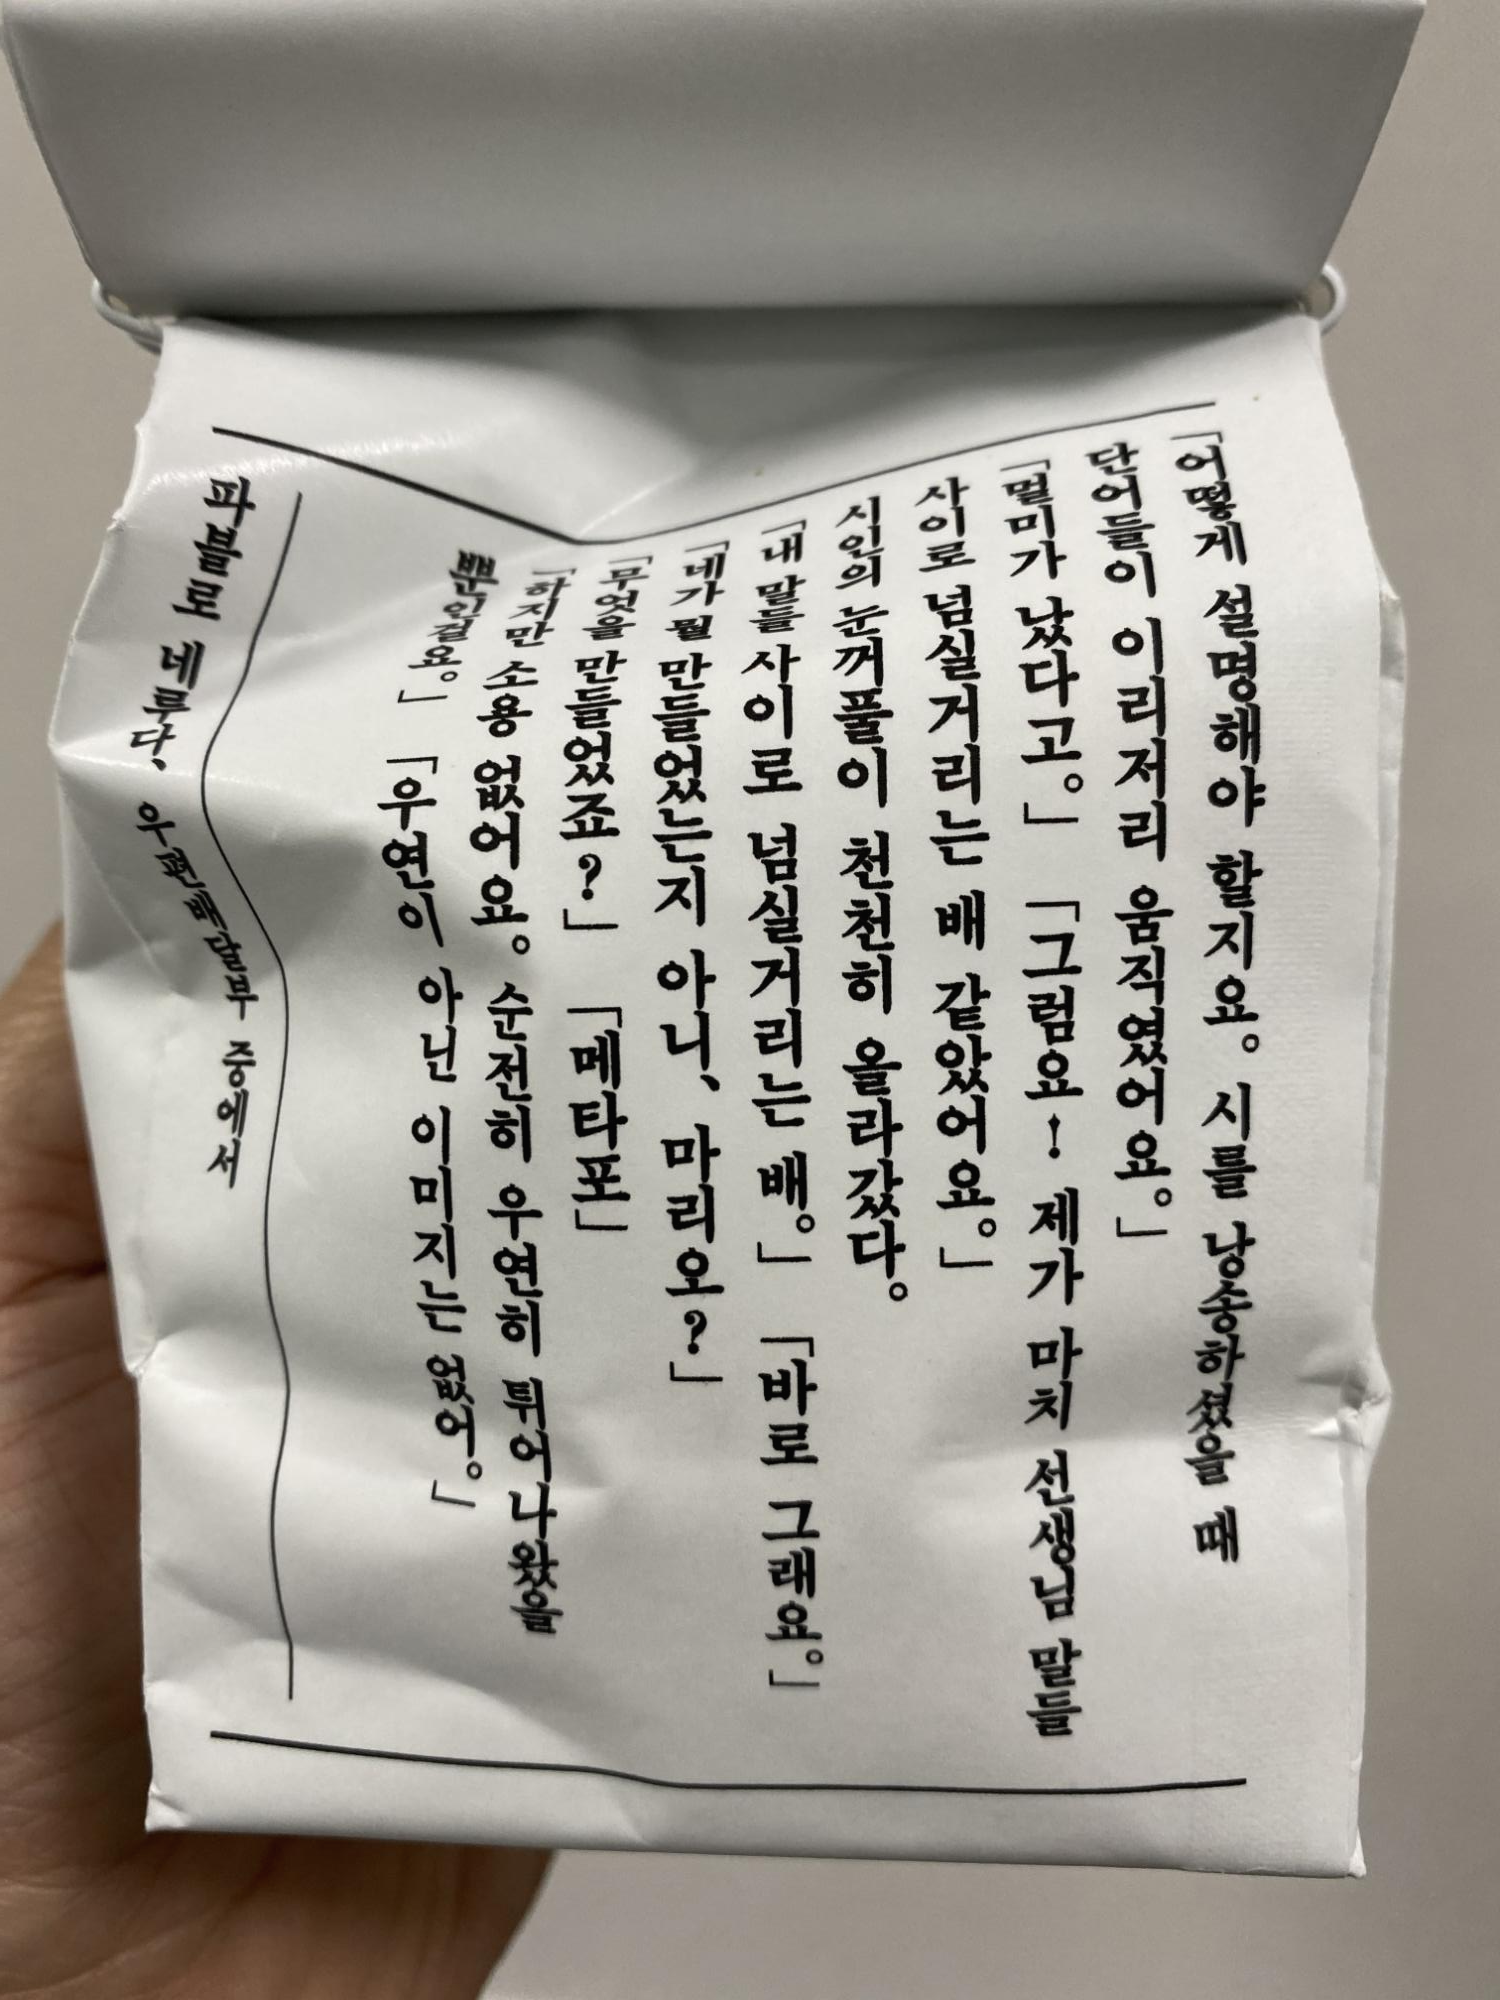 「어떻게 설명해야 할지요。 시를 낭송하셨을 때
단어들이 이리저리 움직였어요。」
「멀미가 났다고。」 「그럼요! 제가 마치 선생님 말들
사이로 넘실거리는 배 같았어요。」
시인의 눈꺼풀이 천천히 올라갔다。
「내 말들 사이로 넘실거리는 배。」 「바로 그래요。」
「네가 뭘 만들었는지 아니、 마리오?」
「무엇을 만들었죠?」 「메타포」
「하지만 소용 없어요。 순전히 우연히 튀어나왔을
뿐인걸요。」 「우연이 아닌 이미지는 없어。」
파블로 네루다、 우편배달부 중에서